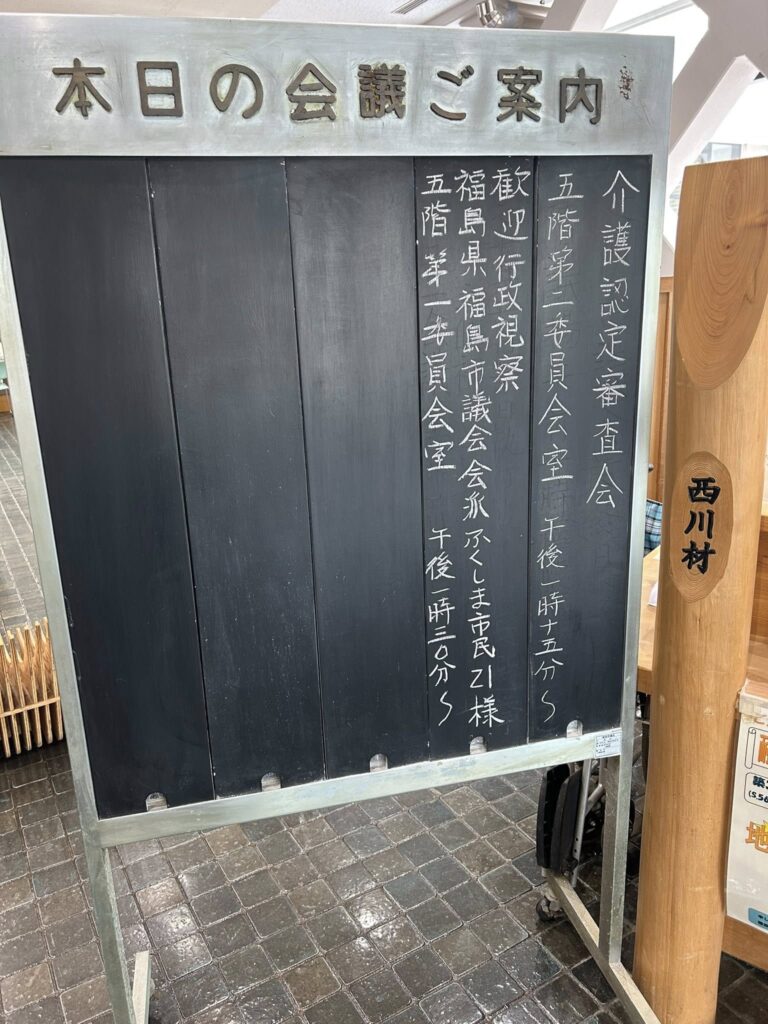 本日の会議ご案内
介護認定審査会
五階第二委員会室 午後一時十五分〜
歓迎 行政視察
福島県福島市議会会派ふくしま市民21様
五階第一委員会室 午後一時三〇分〜
西川材